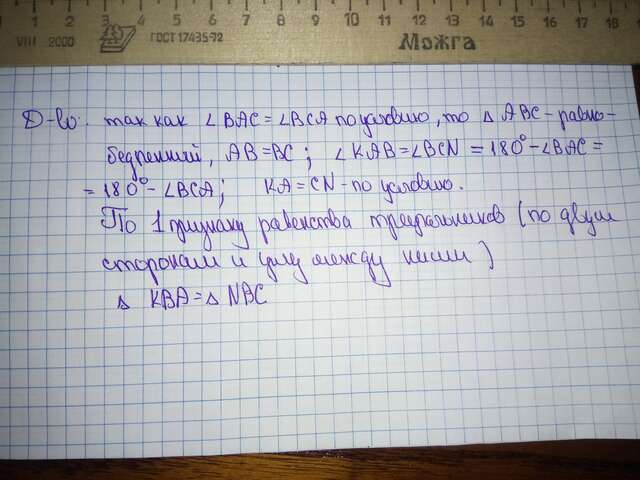 Д-во: так как ∠BAC = ∠BCA по условию, то △ ABC - равно-
бедренный, AB = BC; ∠KAB = ∠BCN = 180° - ∠BAC =
= 180° - ∠BCA; KA = CN - по условию.
По 1 признаку равенства треугольников (по двум
сторонам и углу между ними)
△ KBA = △ NBC
VIII 2000
ГОСТ 17435-72
Можга
1 2 3 4 5 6 7 8 9 10 11 12 13 14 15 16 17 18